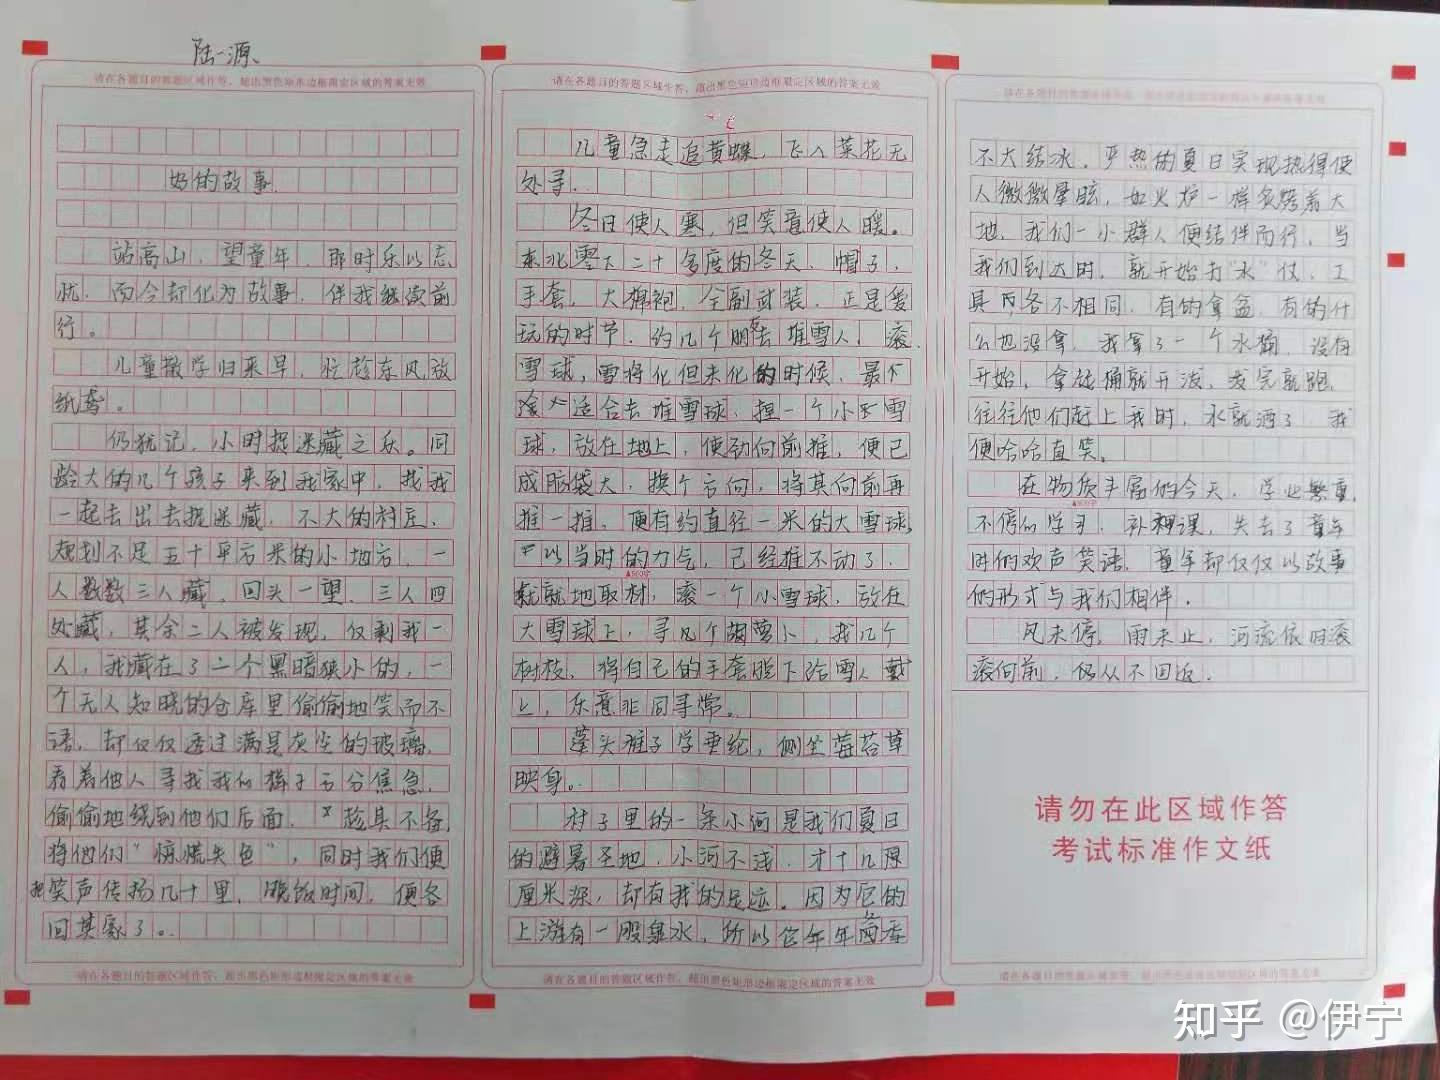 陆一源
请在各题目的答题区域作答，超出黑色矩形边框限定区域的答案无效
好的故事
站高山，望童年，那时乐以忘
忧，而今却化为故事，伴我继续前
行。
儿童散学归来早，忙趁东风放
纸鸢。
仍犹记，小时捉迷藏之乐。同
龄大的几个孩子来到我家中，找我
一起去出去捉迷藏，不大的村庄，
规划不足五十平方米的小地方，一
人数数三人藏，回头一望，三人四
处藏，其余二人被发现，仅剩我一
人，我藏在了一个黑暗狭小的，一
个无人知晓的仓库里偷偷地笑而不
语，却仅仅透过满是灰尘的玻璃，
看着他人寻找我的样子万分焦急，
偷偷地绕到他们后面，趁其不备，
将他们“惊慌失色”，同时我们便
把笑声传扬几十里，晚饭时间，便各
回其家了。
请在各题目的答题区域作答，超出黑色矩形边框限定区域的答案无效
请在各题目的答题区域作答，超出黑色矩形边框限定区域的答案无效
儿童急走追黄蝶，飞入菜花无
处寻。
冬日使人寒，但笑意使人暖。
东北零下二十多度的冬天，帽子，
手套，大棉袍，全副武装，正是爱
玩的时节，约几个朋友去堆雪人，滚
雪球，雪将化但未化的时候，最
适合去堆雪球，捏一个小雪
球，放在地上，使劲向前推，便已
成脑袋大，换个方向，将其向前再
推一推，便有约直径一米的大雪球，
以当时的力气，已经推不动了，
就地取材，滚一个小雪球，放在
▲600字
大雪球上，寻几个胡萝卜，找几个
树枝，将自己的手套脱下给雪人戴
上，乐意非同寻常。
蓬头稚子学垂纶，侧坐莓苔草
映身。
村子里的一条小河是我们夏日
的避暑圣地，小河不浅，才十几厘
厘米深，却有我的足迹。因为它的
上游有一股泉水，所以它年年
请在各题目的答题区域作答，超出黑色矩形边框限定区域的答案无效
请在各题目的答题区域作答，超出黑色矩形边框限定区域的答案无效
不大结冰，严热的夏日实现热得使
人微微晕眩，如火炉一样炙烤着大
地，我们一小群人便结伴而行，当
我们到达时，就开始打“水”仗，工
具各不相同，有的拿盆，有的什
么也没拿，我拿了一个水桶，没有
开始，拿桶就开泼，泼完就跑，
往往他们赶上我时，水就洒了，我
便哈哈直笑。
在物质丰富的今天，学业繁重，
不停的学习，补课，失去了童年
时的欢声笑语，童年却仅仅以故事
的形式与我们相伴。
风未停，雨未止，河流依旧滚
滚向前，仍从不回返。
请勿在此区域作答
考试标准作文纸
请在各题目的答题区域作答，超出黑色矩形边框限定区域的答案无效
知乎 @伊宁